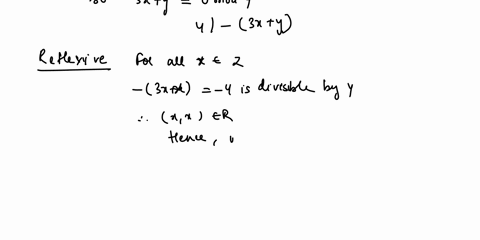 3x+y = 0 mod 4
4 | - (3x+y)
Reflexive for all x ∈ Z
-(3x+x) = -4 is divisible by 4
∴ (x,x) ∈ R
Hence,